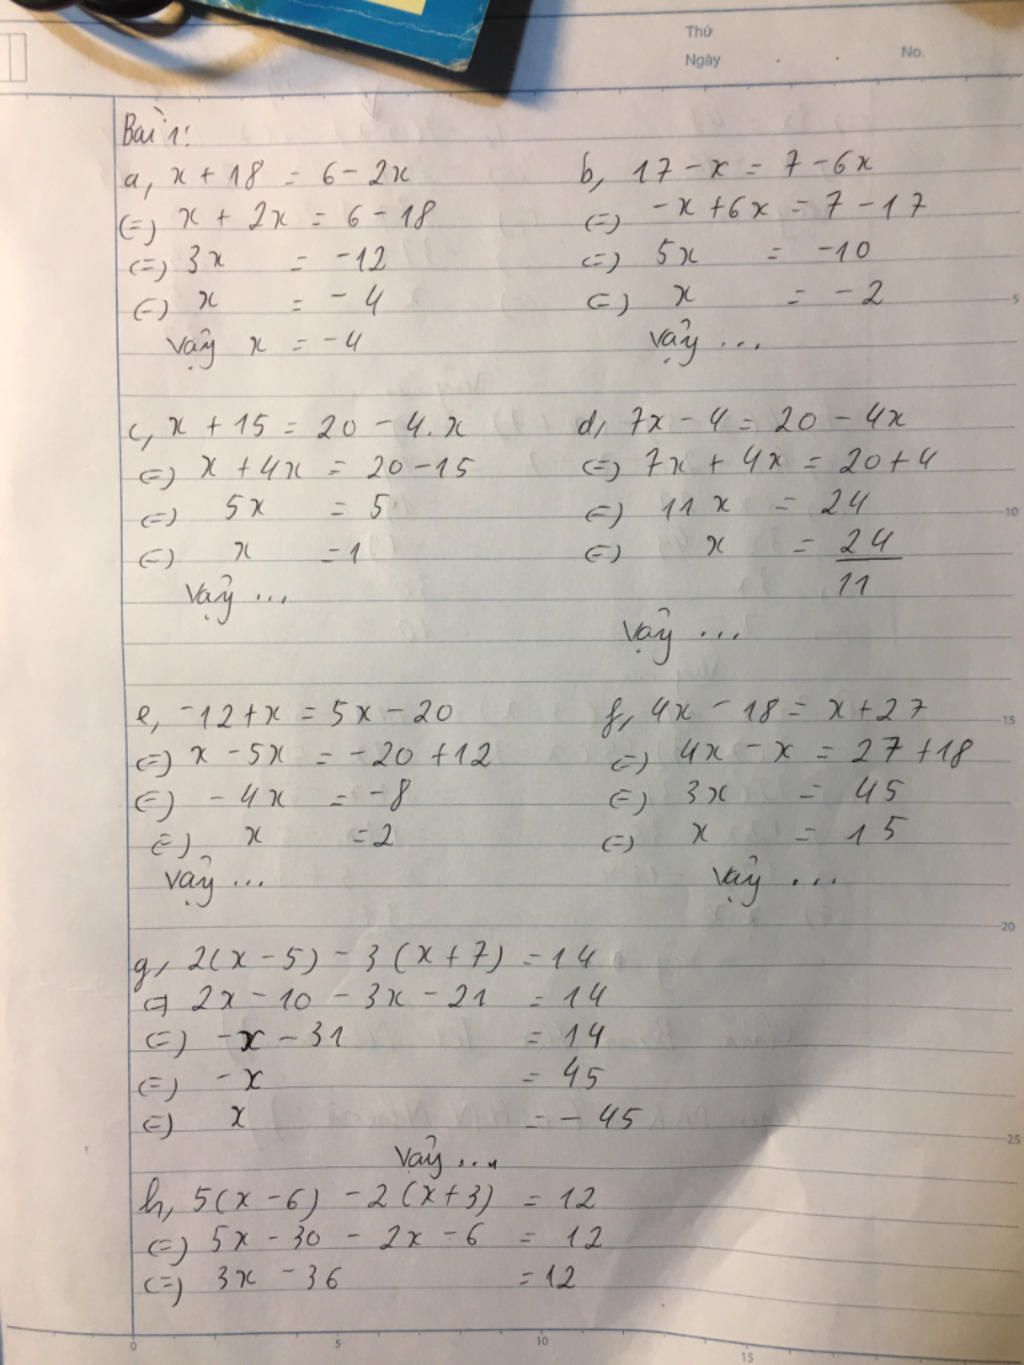 Thứ
Ngày . . No.
Bài 1:
a, x + 18 = 6 - 2x
(=) x + 2x = 6 - 18
(=) 3x = -12
(=) x = - 4
Vậy x = -4
b, 17 - x = 7 - 6x
(=) -x + 6x = 7 - 17
(=) 5x = -10
(=) x = -2
Vậy ...
c, x + 15 = 20 - 4.x
(=) x + 4x = 20 - 15
(=) 5x = 5
(=) x = 1
Vậy ...
d, 7x - 4 = 20 - 4x
(=) 7x + 4x = 20 + 4
(=) 11x = 24
(=) x = 24/11
Vậy ...
e, -12 + x = 5x - 20
(=) x - 5x = -20 + 12
(=) - 4x = -8
(=) x = 2
Vậy ...
f, 4x - 18 = x + 27
(=) 4x - x = 27 + 18
(=) 3x = 45
(=) x = 15
Vậy ...
g, 2(x - 5) - 3(x + 7) = 14
(=) 2x - 10 - 3x - 21 = 14
(=) -x - 31 = 14
(=) -x = 45
(=) x = - 45
Vậy ...
h, 5(x - 6) - 2(x + 3) = 12
(=) 5x - 30 - 2x - 6 = 12
(=) 3x - 36 = 12
5
10
15
20
25
0 5 10 15